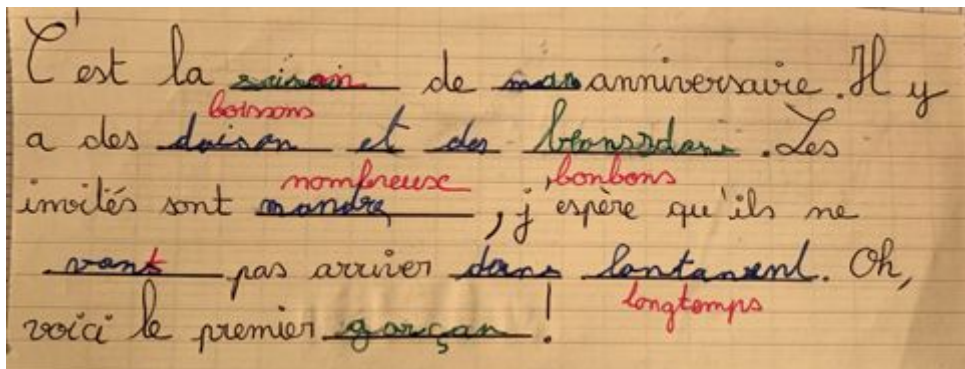 C'est la saison de mon anniversaire. Il y
boissons
a des doison et des. Les
nombreux bonbons
invités sont mandre, j'espère qu'ils ne
vont pas arriver dans lontanent. Oh,
longtemps
voici le premier garçon!